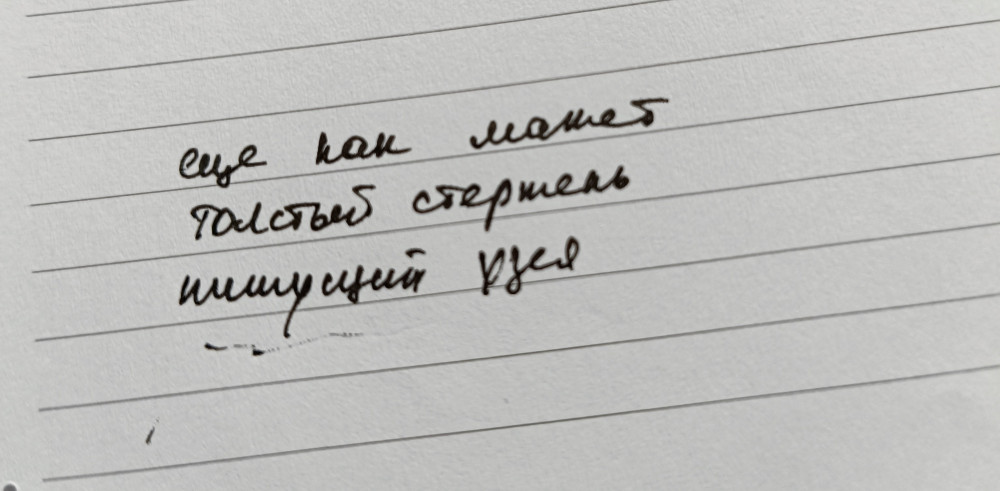 еще как мажет
толстый стержень
пишущий узел